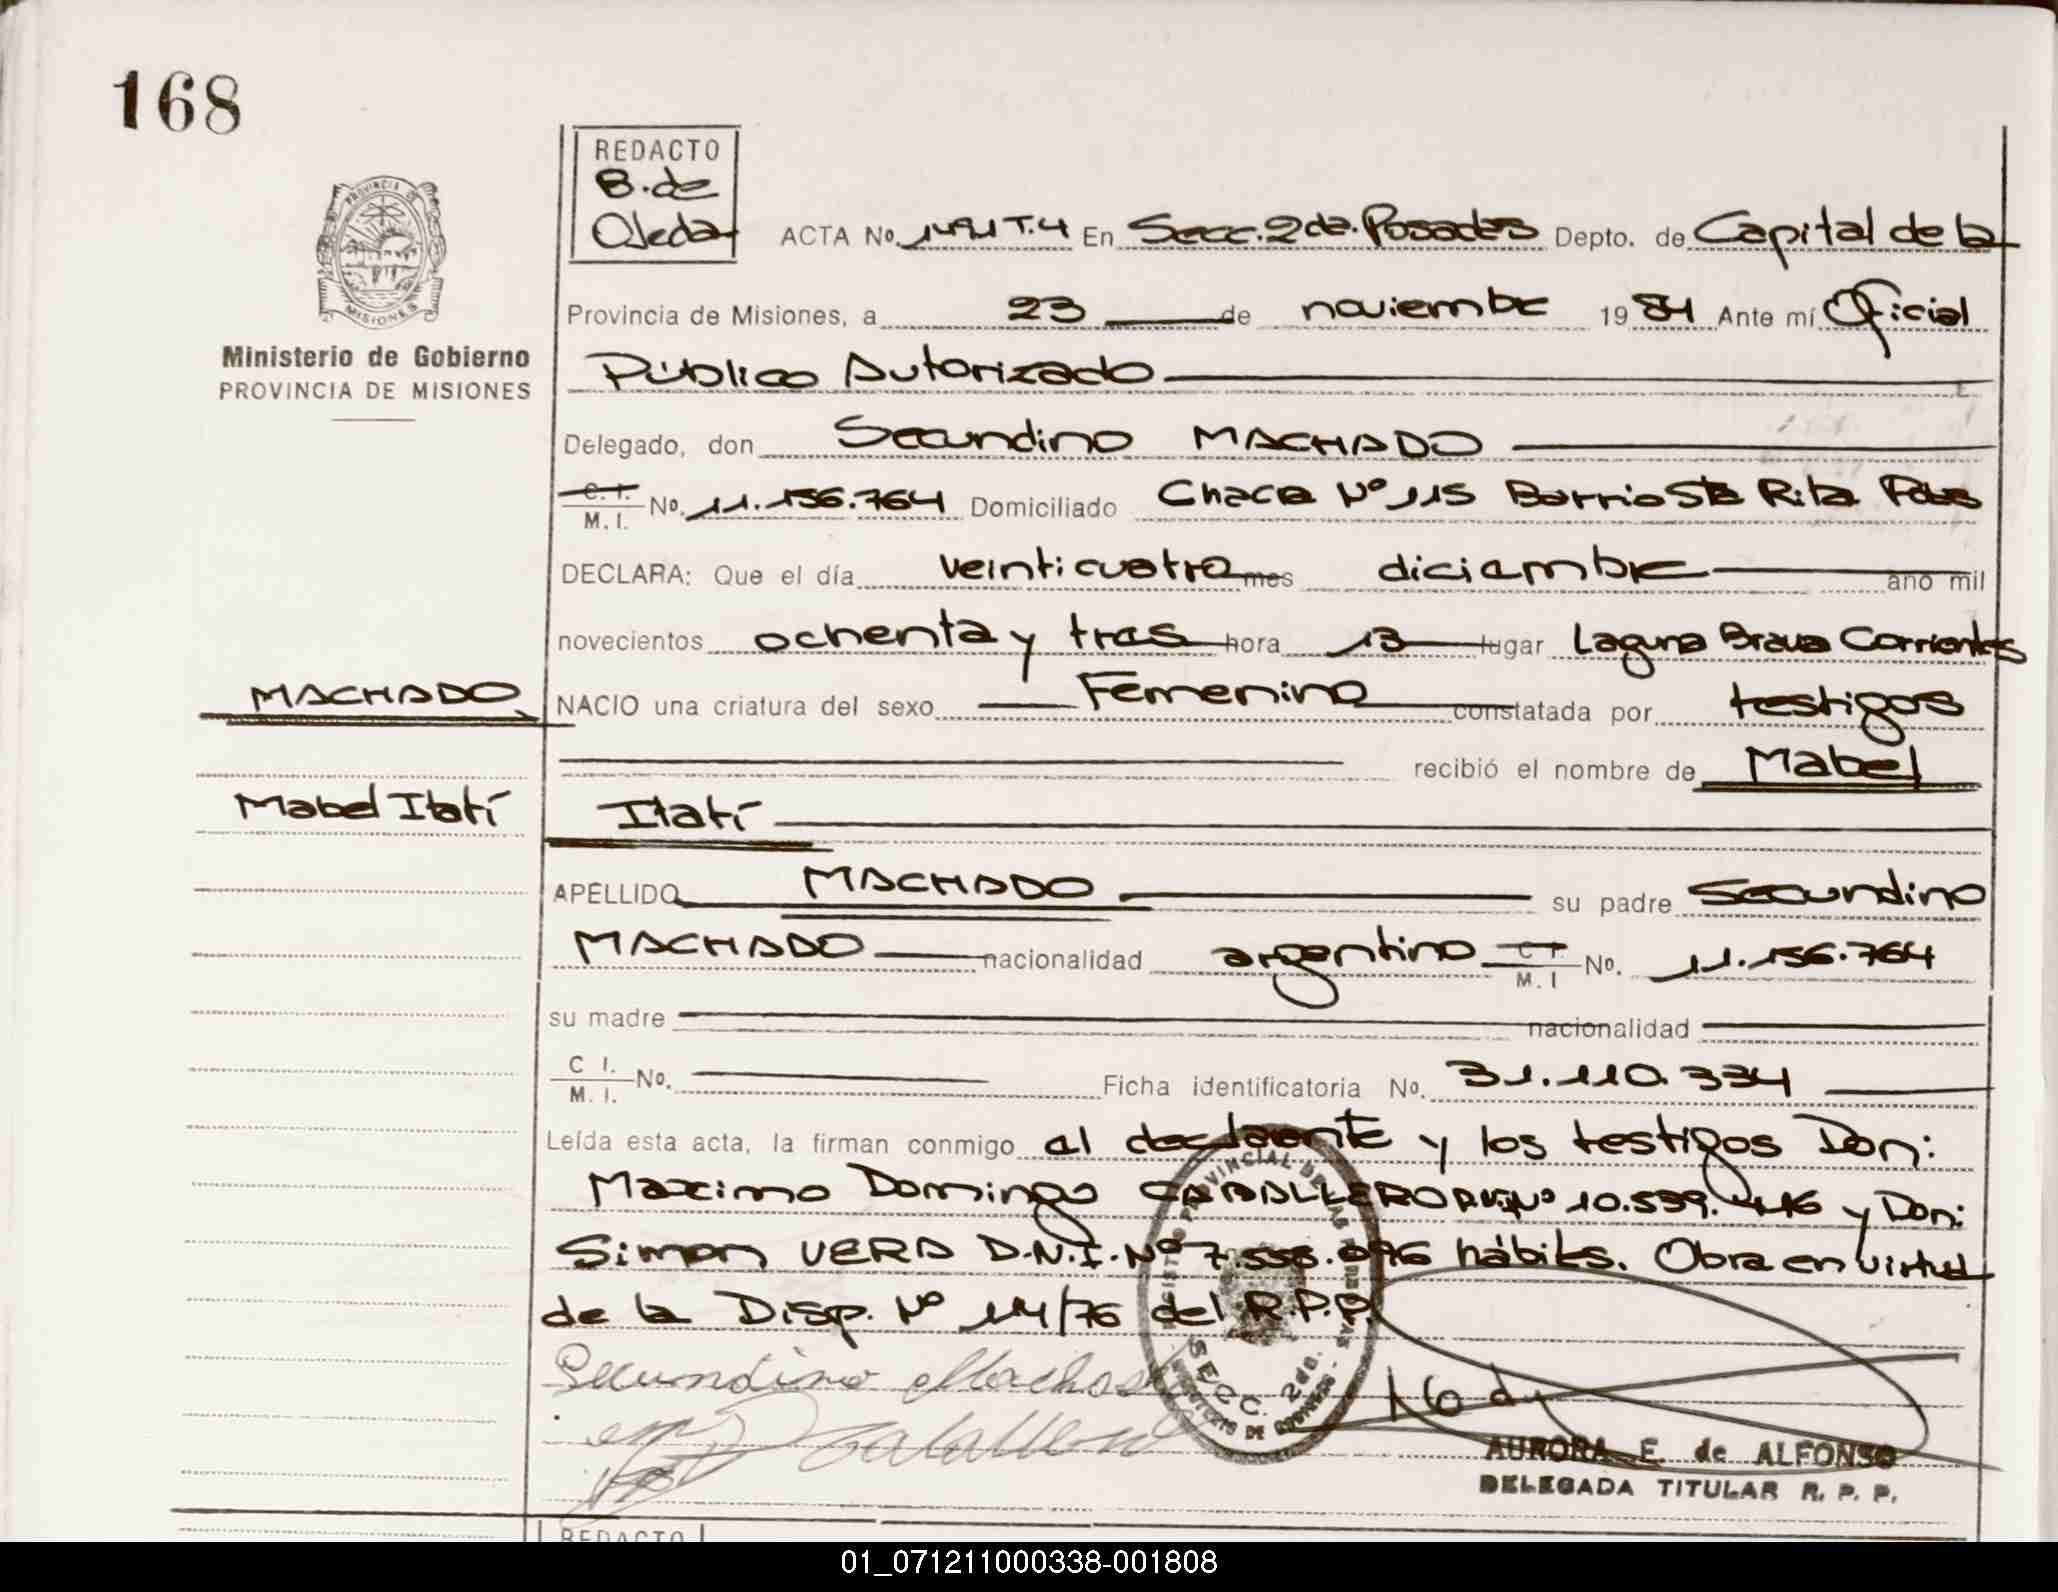 168
REDACTO
B. de
Ojeda
ACTA No. 1491 T.4 En Secc. 2da. Posadas Depto. de Capital de la
Provincia de Misiones, a 23 de noviembre 1984 Ante mí Oficial
Público Autorizado
Delegado, don Secundino MACHADO
C. I. M. I. No. 11.156.764 Domiciliado Chacra Nº 115 Barrio Sta Rita Pdas
DECLARA: Que el día veinticuatro mes diciembre ano mil
novecientos ochenta y tres hora 13 lugar Laguna Brava Corrientes
NACIO una criatura del sexo Femenino constatada por testigos
recibió el nombre de Mabel
Itatí
APELLIDO MACHADO su padre Secundino
MACHADO nacionalidad argentino C I. M. I No. 11.156.764
su madre nacionalidad
C I. M. I. No. Ficha identificatoria No. 31.110.334
Leída esta acta, la firman conmigo el declarante y los testigos Don:
Maximo Domingo CABALLERO D.N.I. Nº 10.539.416 y Don:
Simon VERA D.N.I. Nº 7.556.096 hábiles. Obra en virtud
de la Disp. Nº 14/76 del R.P.P.
Secundino Machado
Caballero
PROVINCIA DE
MISIONES
Ministerio de Gobierno
PROVINCIA DE MISIONES
MACHADO
Mabel Itatí
REGISTRO PROVINCIAL DE LAS PERSONAS
SECC. 2da.
MINISTERIO DE GOBIERNO
AURORA E. de ALFONSO
DELEGADA TITULAR R. P. P.
REDACTO
01_071211000338-001808